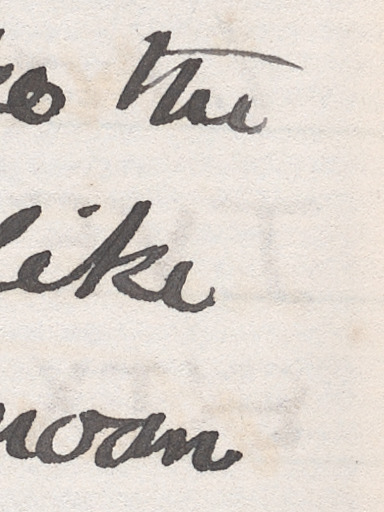 to the
like
moan